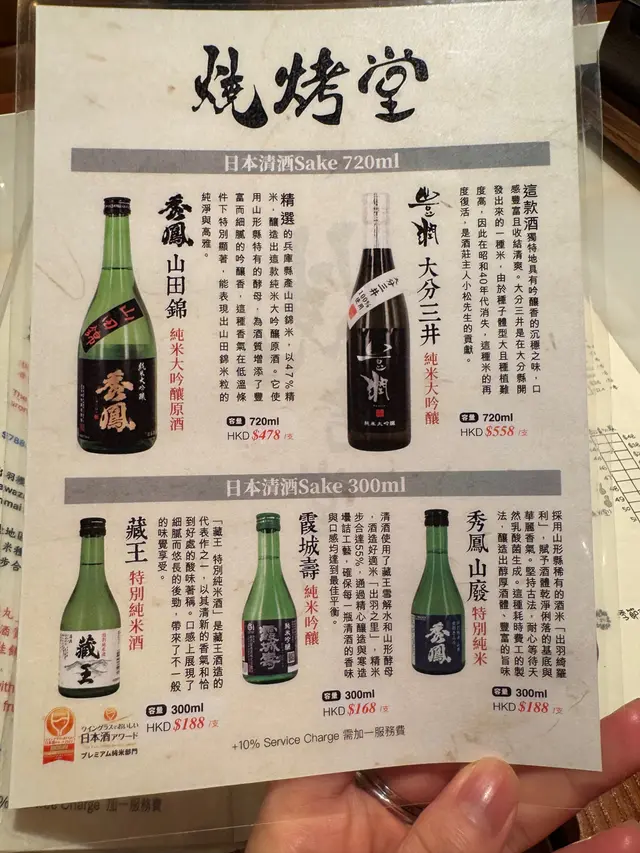 燒烤堂
日本清酒Sake 720ml
這款酒獨特地具有吟釀香的沉穩之味，口
感豐富且收結清爽。大分三井是在大分縣開
發出來的一種米，由於種子體型大且種植難
度高，因此在昭和40年代消失，這種米的再
度復活，是酒莊主人小松先生的貢獻。
豊潤 大分三井 純米大吟釀
容量 720ml
HKD $558 /支
大分三井
100%
豊潤
純米大吟醸
精選的兵庫縣產山田錦米，以47%精
米，釀造出這款純米大吟釀原酒。它使
用山形縣特有的酵母，為酒質增添了豐
富而細膩的吟釀香，這種香氣在低溫條
件下特別顯著，能表現出山田錦米粒的
純淨與高雅。
秀鳳 山田錦 純米大吟釀原酒
容量 720ml
HKD $478 /支
山田錦
純米大吟醸
秀鳳
日本清酒Sake 300ml
採用山形縣稀有的酒米「出羽綺羅
利」，賦予酒體乾淨俐落的基底與
華麗香氣。堅持古法，耐心等待天
然乳酸菌生成。這種耗時費工的製
法，釀造出醇厚酒體，豐富的旨味
秀鳳 山廢 特別純米
容量 300ml
HKD $188 /支
秀鳳
清酒使用了藏王雪解水和山形酵母
，酒造好適米「出羽之里」，精米
步合達55%，通過精心釀造與寒造
壜詰工藝，確保每一瓶清酒的香味
與口感均達到最佳平衡。
霞城壽 純米吟釀
容量 300ml
HKD $168 /支
純米吟醸
霞城寿
「藏王 特別純米酒」是藏王酒造的
代表作之一，以其清新的香氣和恰
到好處的酸味著稱。口感上展現了
細膩而悠長的後勁，帶來了不一般
的味覺享受。
藏王 特別純米酒
容量 300ml
HKD $188 /支
蔵王
ワイングラスでおいしい
日本酒アワード
プレミアム純米部門
+10% Service Charge 需加一服務費
Charge 加一服務費